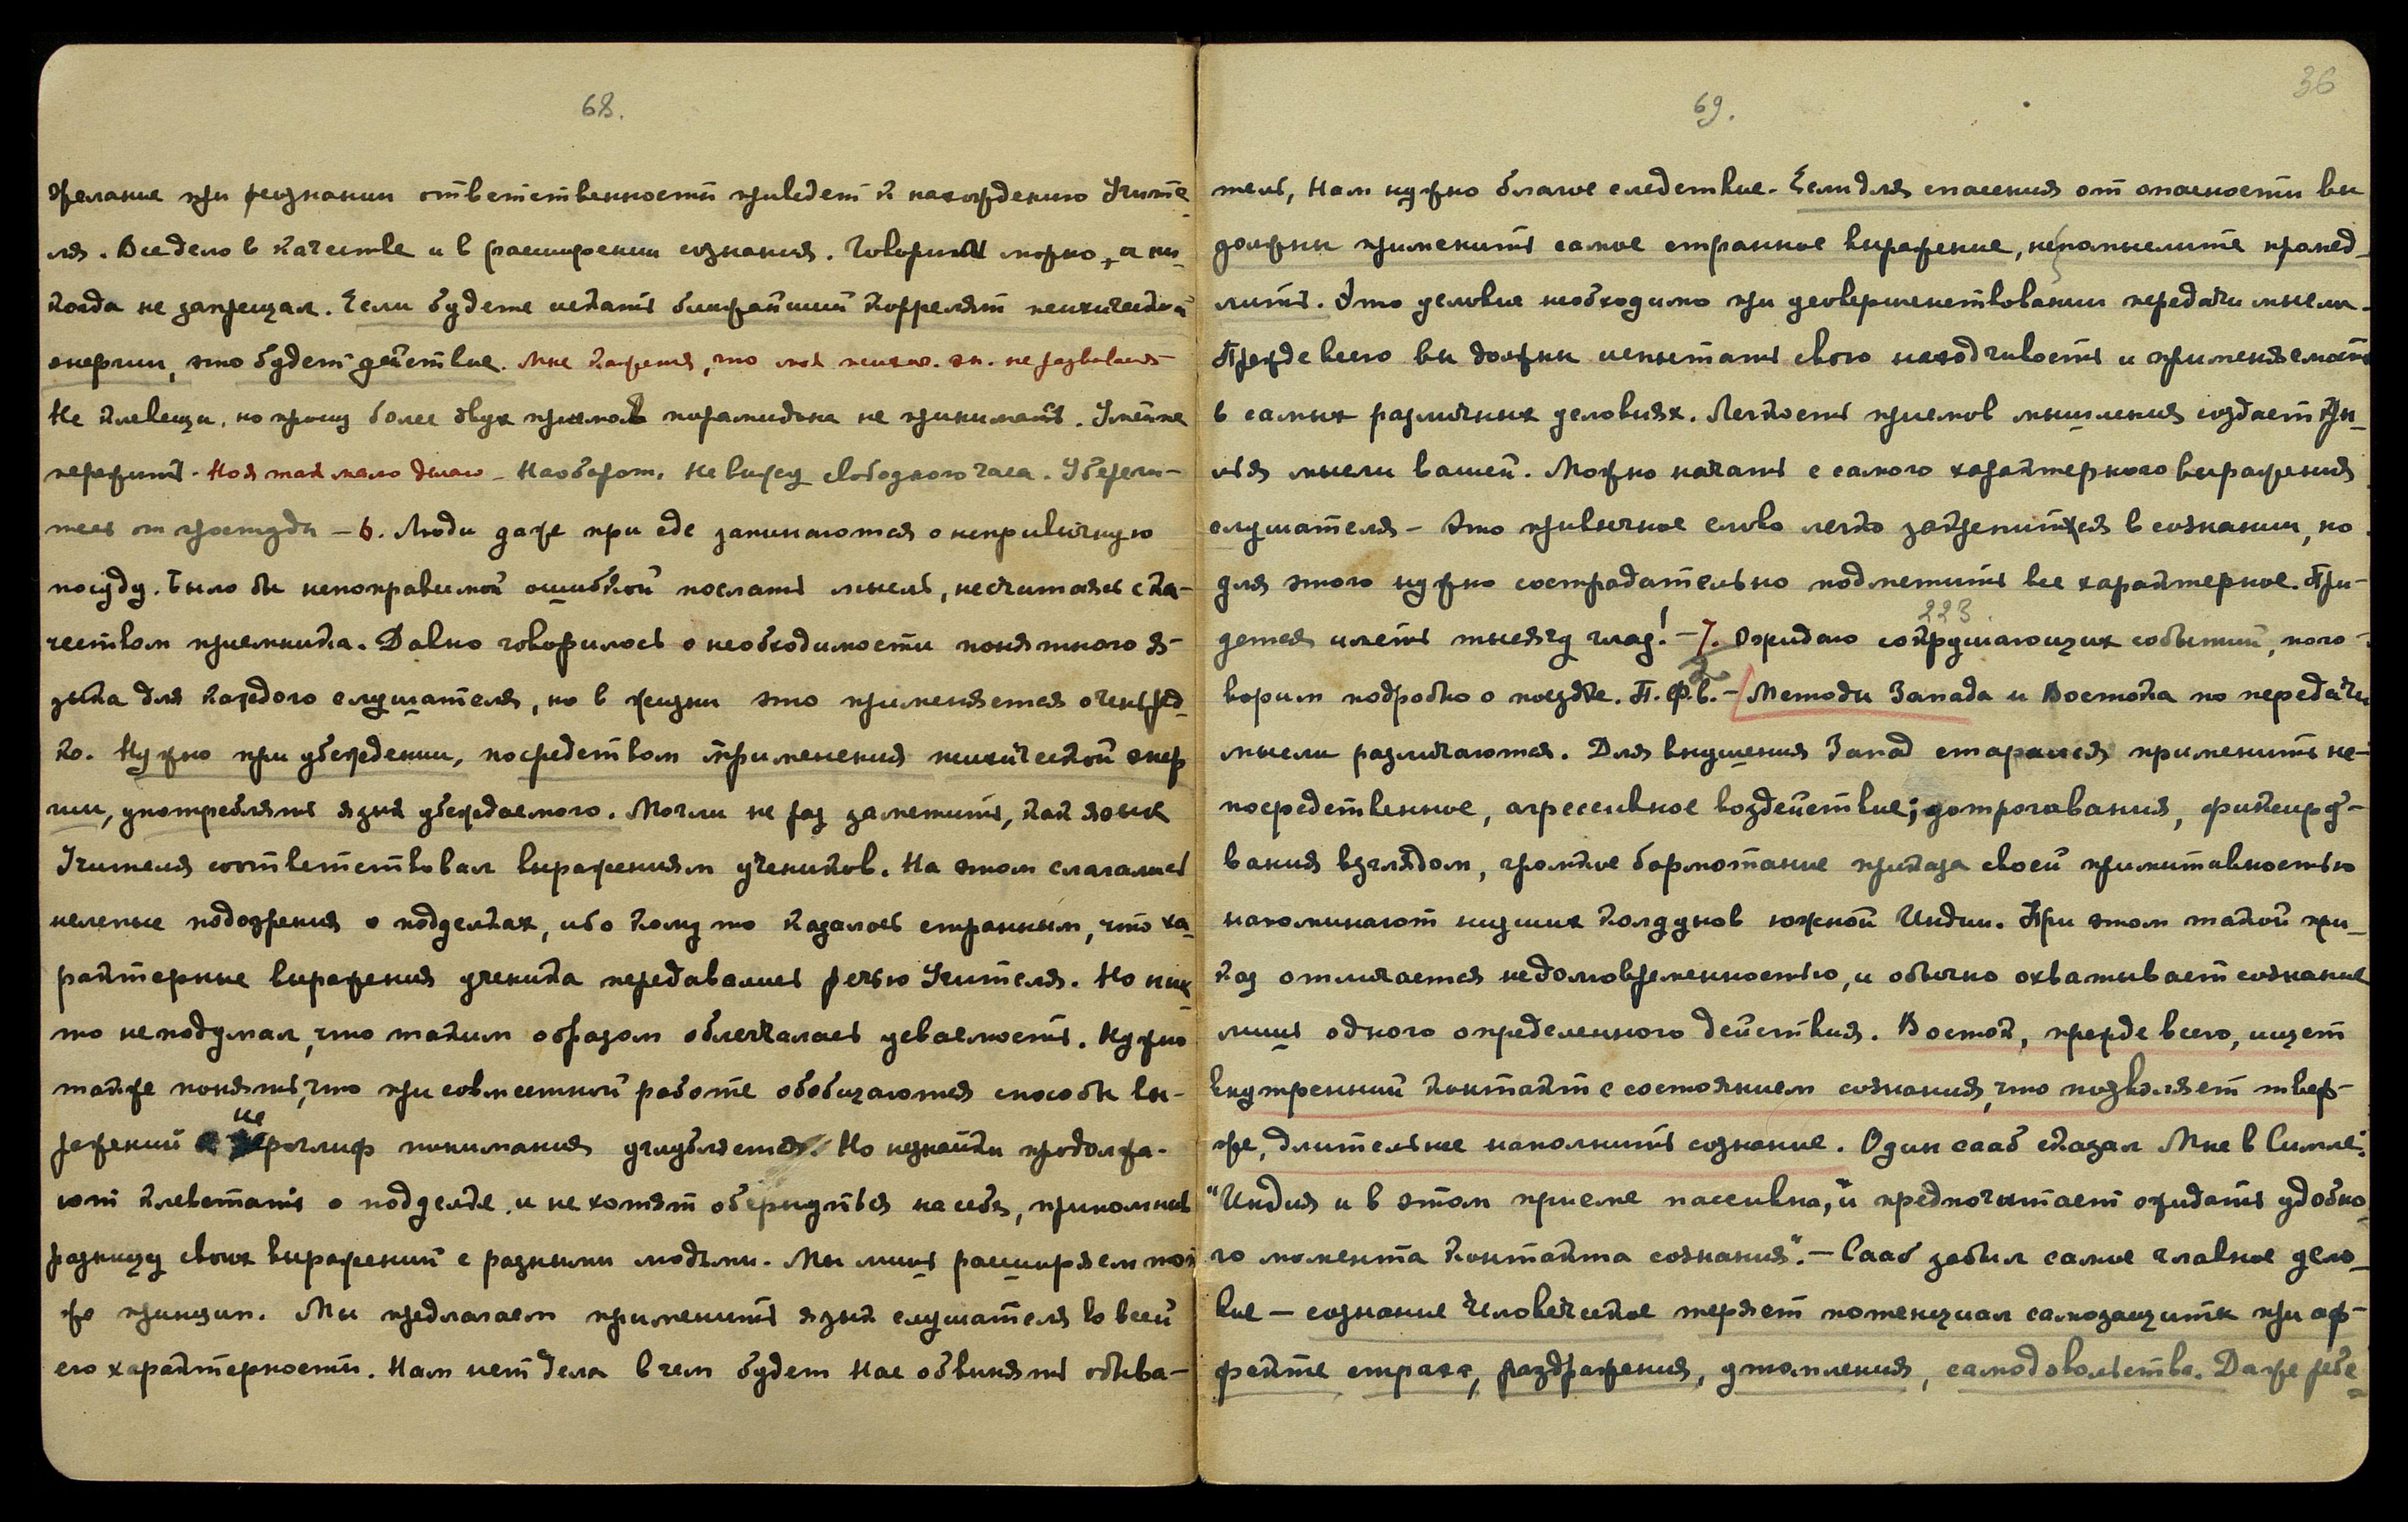 68.
желание при сознании ответственности приведет к нахождению Учите-
ля. Все дело в качестве и в расширении сознания. Говорить можно, а ни-
когда не запрещал. Если будете искать ближайший коррелят психической
энергии, это будет действие. Мне кажется, что моя психич. эн. не развивается
Не клевещи, но прошу более двух приемов пирамидона не принимать. Умейте
пережить. Но я так мало делаю – Наоборот, не вижу свободного часа. Убереги-
тесь от простуды – 6. Люди даже при еде запинаются о непривычную
посуду. Было бы непоправимой ошибкой послать мысль, не считаясь с ка-
чеством приемника. Давно говорилось о необходимости понятного я-
зыка для каждого слушателя, но в жизни это применяется очень ред-
ко. Нужно при убеждении, посредством применения психической энер
гии, употреблять язык убеждаемого. Могли не раз заметить, как язык
Учителя соответствовал выражениям учеников. На этом слагались
нелепые подозрения о подделках, ибо кому то казалось странным, что ха-
рактерные выражения ученика передавались речью Учителя. Но ник-
то не подумал, что таким образом облегчалась усваемость. Нужно
также понять, что при совместной работе обобщаются способы вы-
ражений иероглиф понимания углубляется. Но незнайки продолжа-
ют клеветать о подделке и не хотят обернуться на себя, припомнив
разницу своих выражений с разными людьми. Мы лишь расширяем тот
же принцип. Мы предлагаем применить язык слушателя во всей
его характерности. Нам нет дела в чем будет нас обвинять обыва-
36
69.
тель, Нам нужно благое следствие. Если для спасения от опасности вы
должны применить самое странное выражение, не помыслите промед-
лить. Это условие необходимо при усовершенствовании передачи мысли.
Прежде всего вы должны испытать свою находчивость и применяемость
в самых различных условиях. Легкость приемов мышления создает кры-
лья мысли вашей. Можно начать с самого характерного выражения
слушателя – Это привычное слово легко зацепится в сознании, но
для этого нужно сострадательно подметить все характерное. При-
223.
дется иметь тысячу глаз! – 7. Ожидаю сокрушающих событий, пого-
ворим подробно о поездке. П. Ф. В. – Методы Запада и Востока по передачи
мысли различаются. Для внушения Запад старался применить не-
посредственное, агрессивное воздействие; дотрогавания, фиксиро-
вания взглядом, громкое бормотание приказа своей примитивностью
напоминают низших колдунов южной Индии. При этом такой при-
каз отличается недолговременностью, и обычно охватывает сознание
лишь одного определенного действия. Восток, прежде всего, ищет
внутренний контакт с состоянием сознания, что позволяет твер-
же, длительнее наполнить сознание. Один сааб сказал Мне в Симле:
"Индия и в этом приеме пассивна, и предпочитает ожидать удобно-
го момента контакта сознания". – Сааб забыл самое главное усло-
вие – сознание человеческое теряет потенциал самозащиты при аф-
фекте страха, раздражения, утомления, самодовольства. Даже ребе-